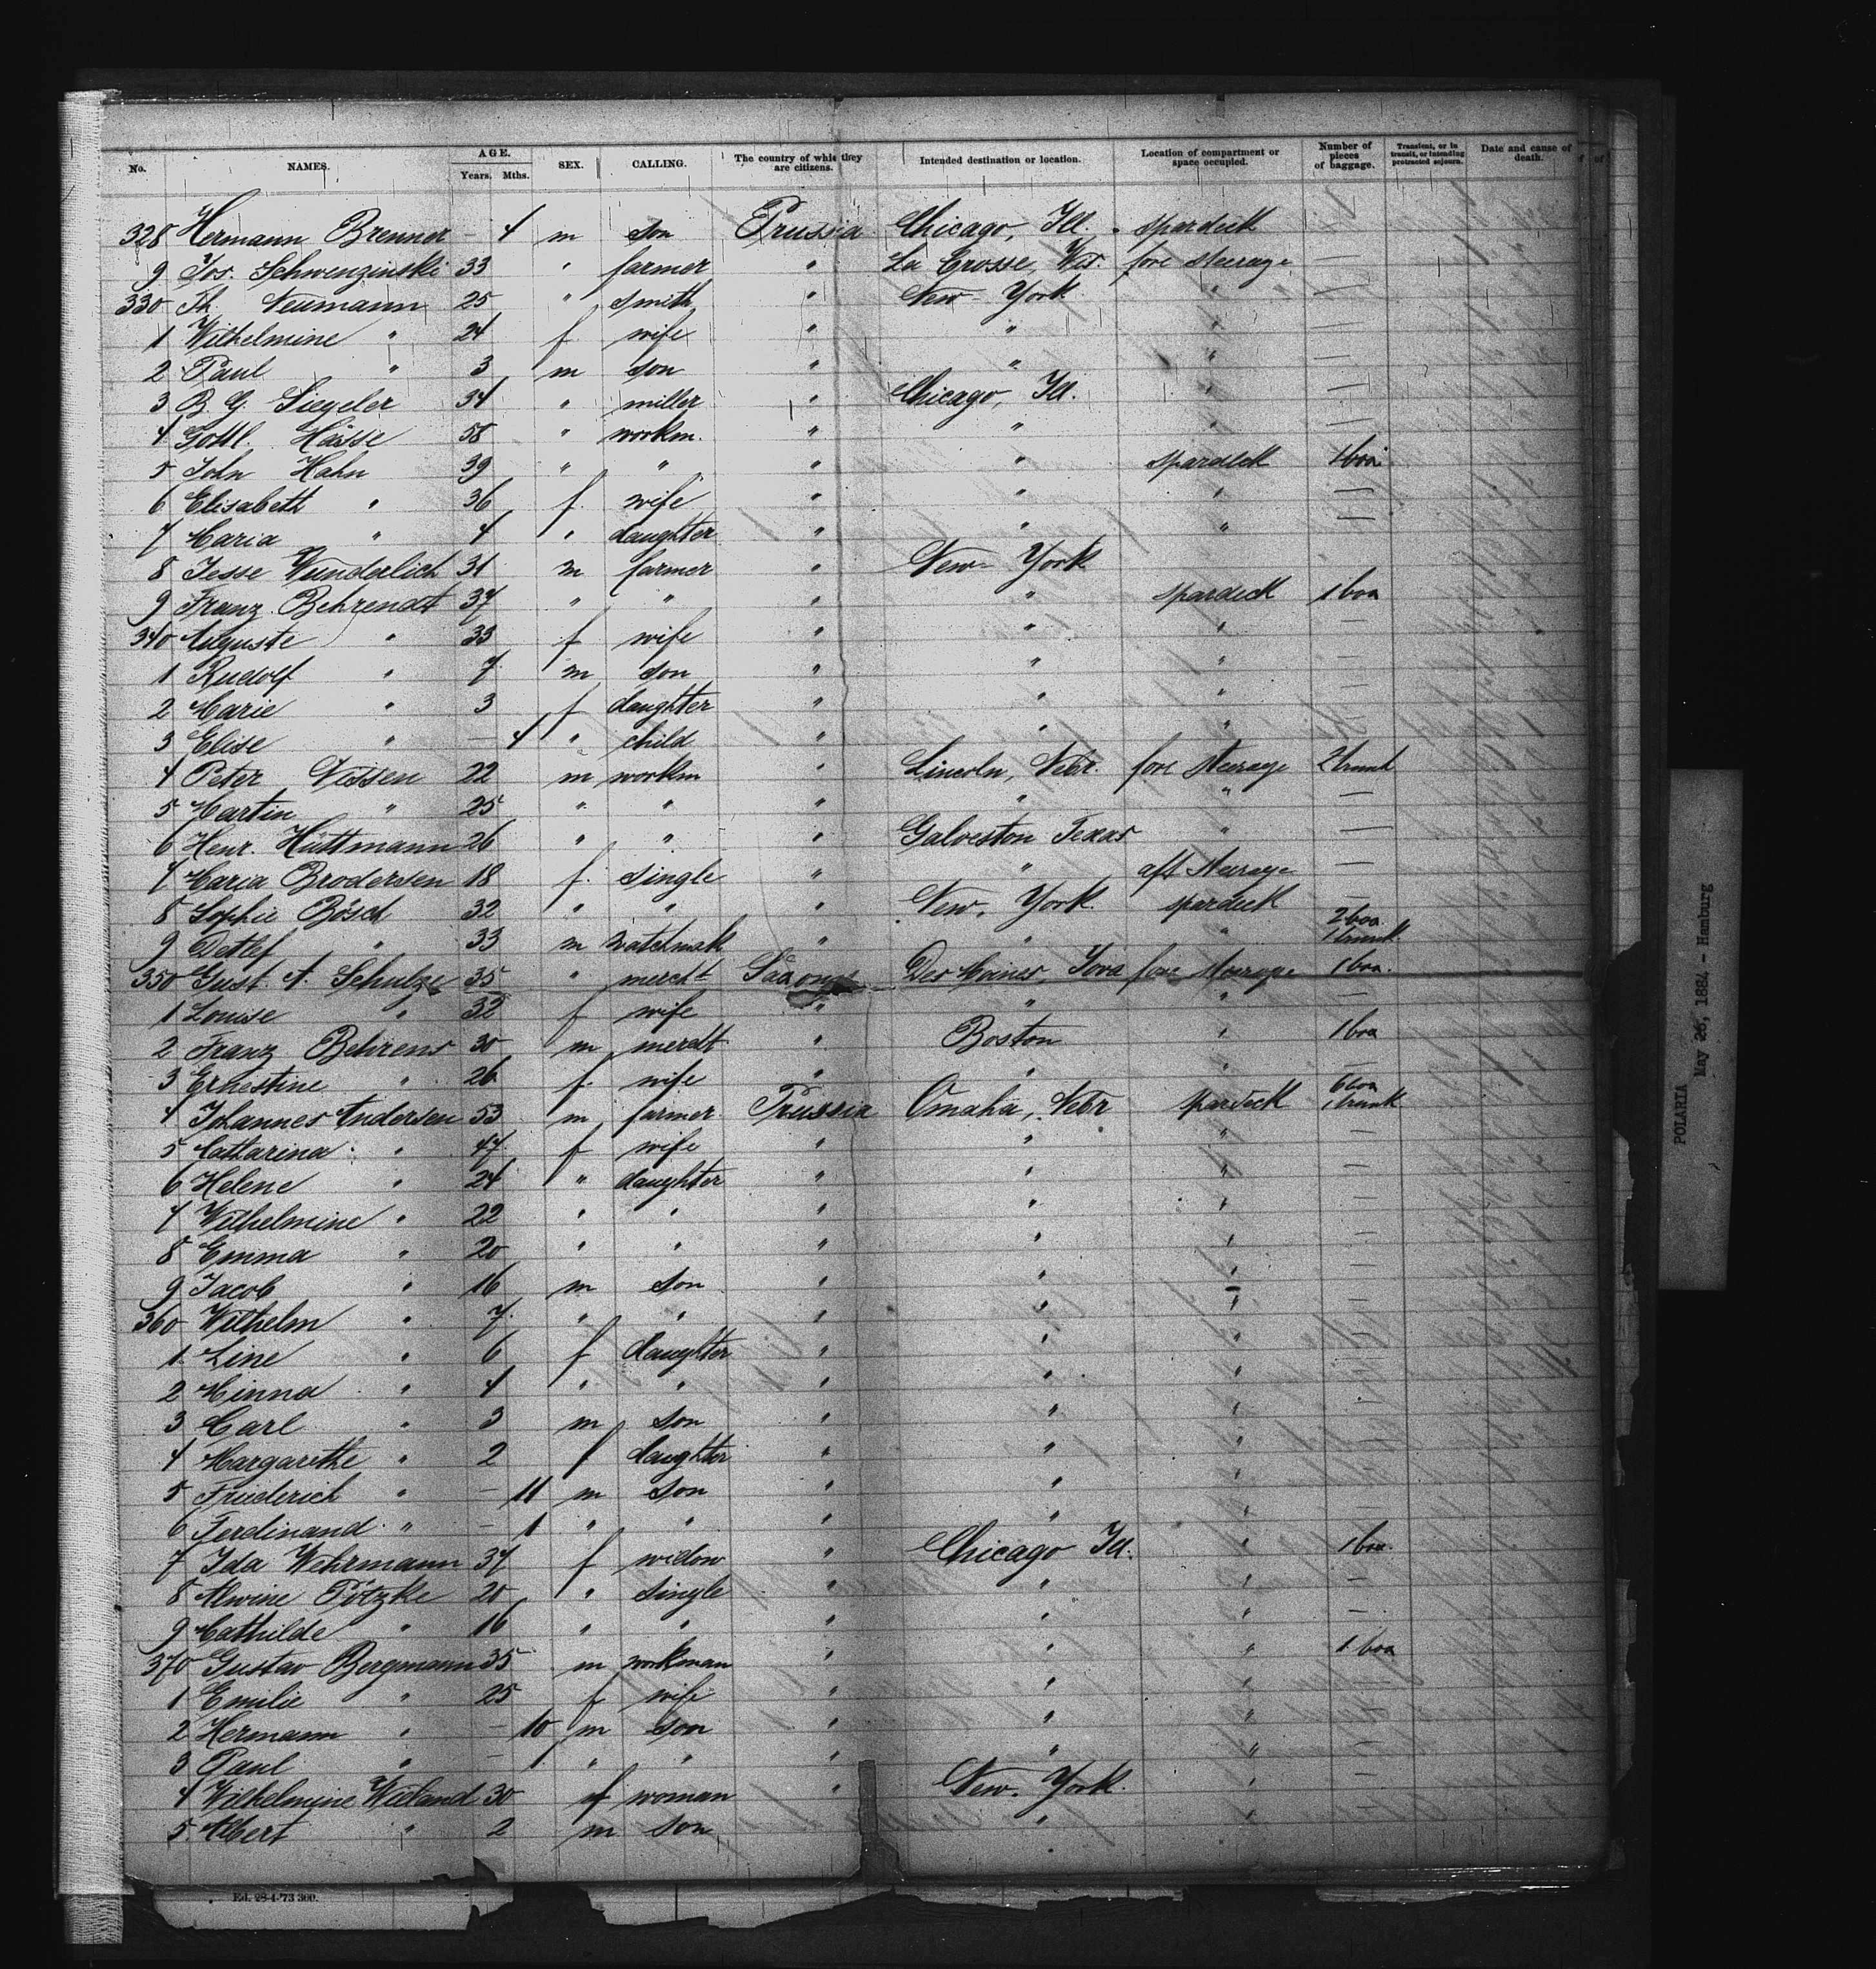 No. NAMES. AGE. Years. Mths. SEX. CALLING. The country of whic they are citizens. Intended destination or location. Location of compartment or space occupied. Number of pieces of baggage. Transient, or in transit, or intending protracted sojourn. Date and cause of death.
328 Hermann Brenner — 4 m son Prussia Chicago, Ill. spardeck
9 Jos. Schwenzinski 33 " farmer " La Crosse, Wis. fore steerage —
330 Th. Neumann 25 " smith " New York " —
1 Wilhelmine " 24 f. wife " " " —
2 Paul " 3 m son " " " —
3 B. G. Siegeler 34 " miller " Chicago, Ill. " —
4 Gottl. Hässe 58 " workm. " " " —
5 John Hahn 39 " " " " spardeck 1 box
6 Elisabeth " 36 f. wife " " " —
7 Maria " 4 " daughter " " " —
8 Jesse Wunderlich 31 m farmer " New York
9 Franz Behrendt 37 " " " " spardeck 1 box
340 Auguste " 33 f wife " " " —
1 Rudolf " 7 m son " " " —
2 Marie " 3 f daughter " " " —
3 Elise " — 4 " child " " " —
4 Peter Nissen 22 m workm " Lincoln, Nebr. fore steerage 2 trunk
5 Martin " 25 " " " " " —
6 Henr. Hüttmann 26 " " " Galveston Texas " —
7 Maria Brodersen 18 f. single " " aft steerage —
8 Sophie Bösch 32 " " " New York spardeck
9 Detlef " 33 m watchmak " " " 2 box 1 trunk
350 Gust. A. Schulze 35 " mercht Saxony Des Moines, Iova fore steerage 1 box.
1 Louise " 32 f wife " " " —
2 Franz Behrens 30 m mercht " Boston " 1 box
3 Ernestine " 26 f wife " " " —
4 Johannes Andersen 53 m farmer Prussia Omaha, Nebr spardeck 6 box 1 trunk
5 Cattarina " 47 f wife " " " —
6 Helene " 24 " daughter " " " —
7 Wilhelmine " 22 " " " " " —
8 Emma " 20 " " " " " —
9 Jacob " 16 m son " " " —
360 Wilhelm " 7 " " " " " —
1 Line " 6 f daughter " " " —
2 Minna " 4 " " " " " —
3 Carl " 3 m son " " " —
4 Margarethe " 2 f daughter " " " —
5 Friederich " — 11 m son " " " —
6 Ferdinand " — 1 " " " " " —
7 Ida Wehrmann 37 f widow " Chicago Ill. " 1 box.
8 Alwine Pötzke 20 " single " " " —
9 Mathilde " 16 " " " " " —
370 Gustav Bergmann 35 m workman " " " 1 box
1 Emilie " 25 f wife " " " —
2 Hermann " — 10 m son " " " —
3 Paul " — 1 " " " " " —
4 Wilhelmine Wieland 30 f woman " New York " —
5 Albert " 2 m son " " " —
Ed. 28-4-'73 300.
POLARIA
May 26, 1884 - Hamburg